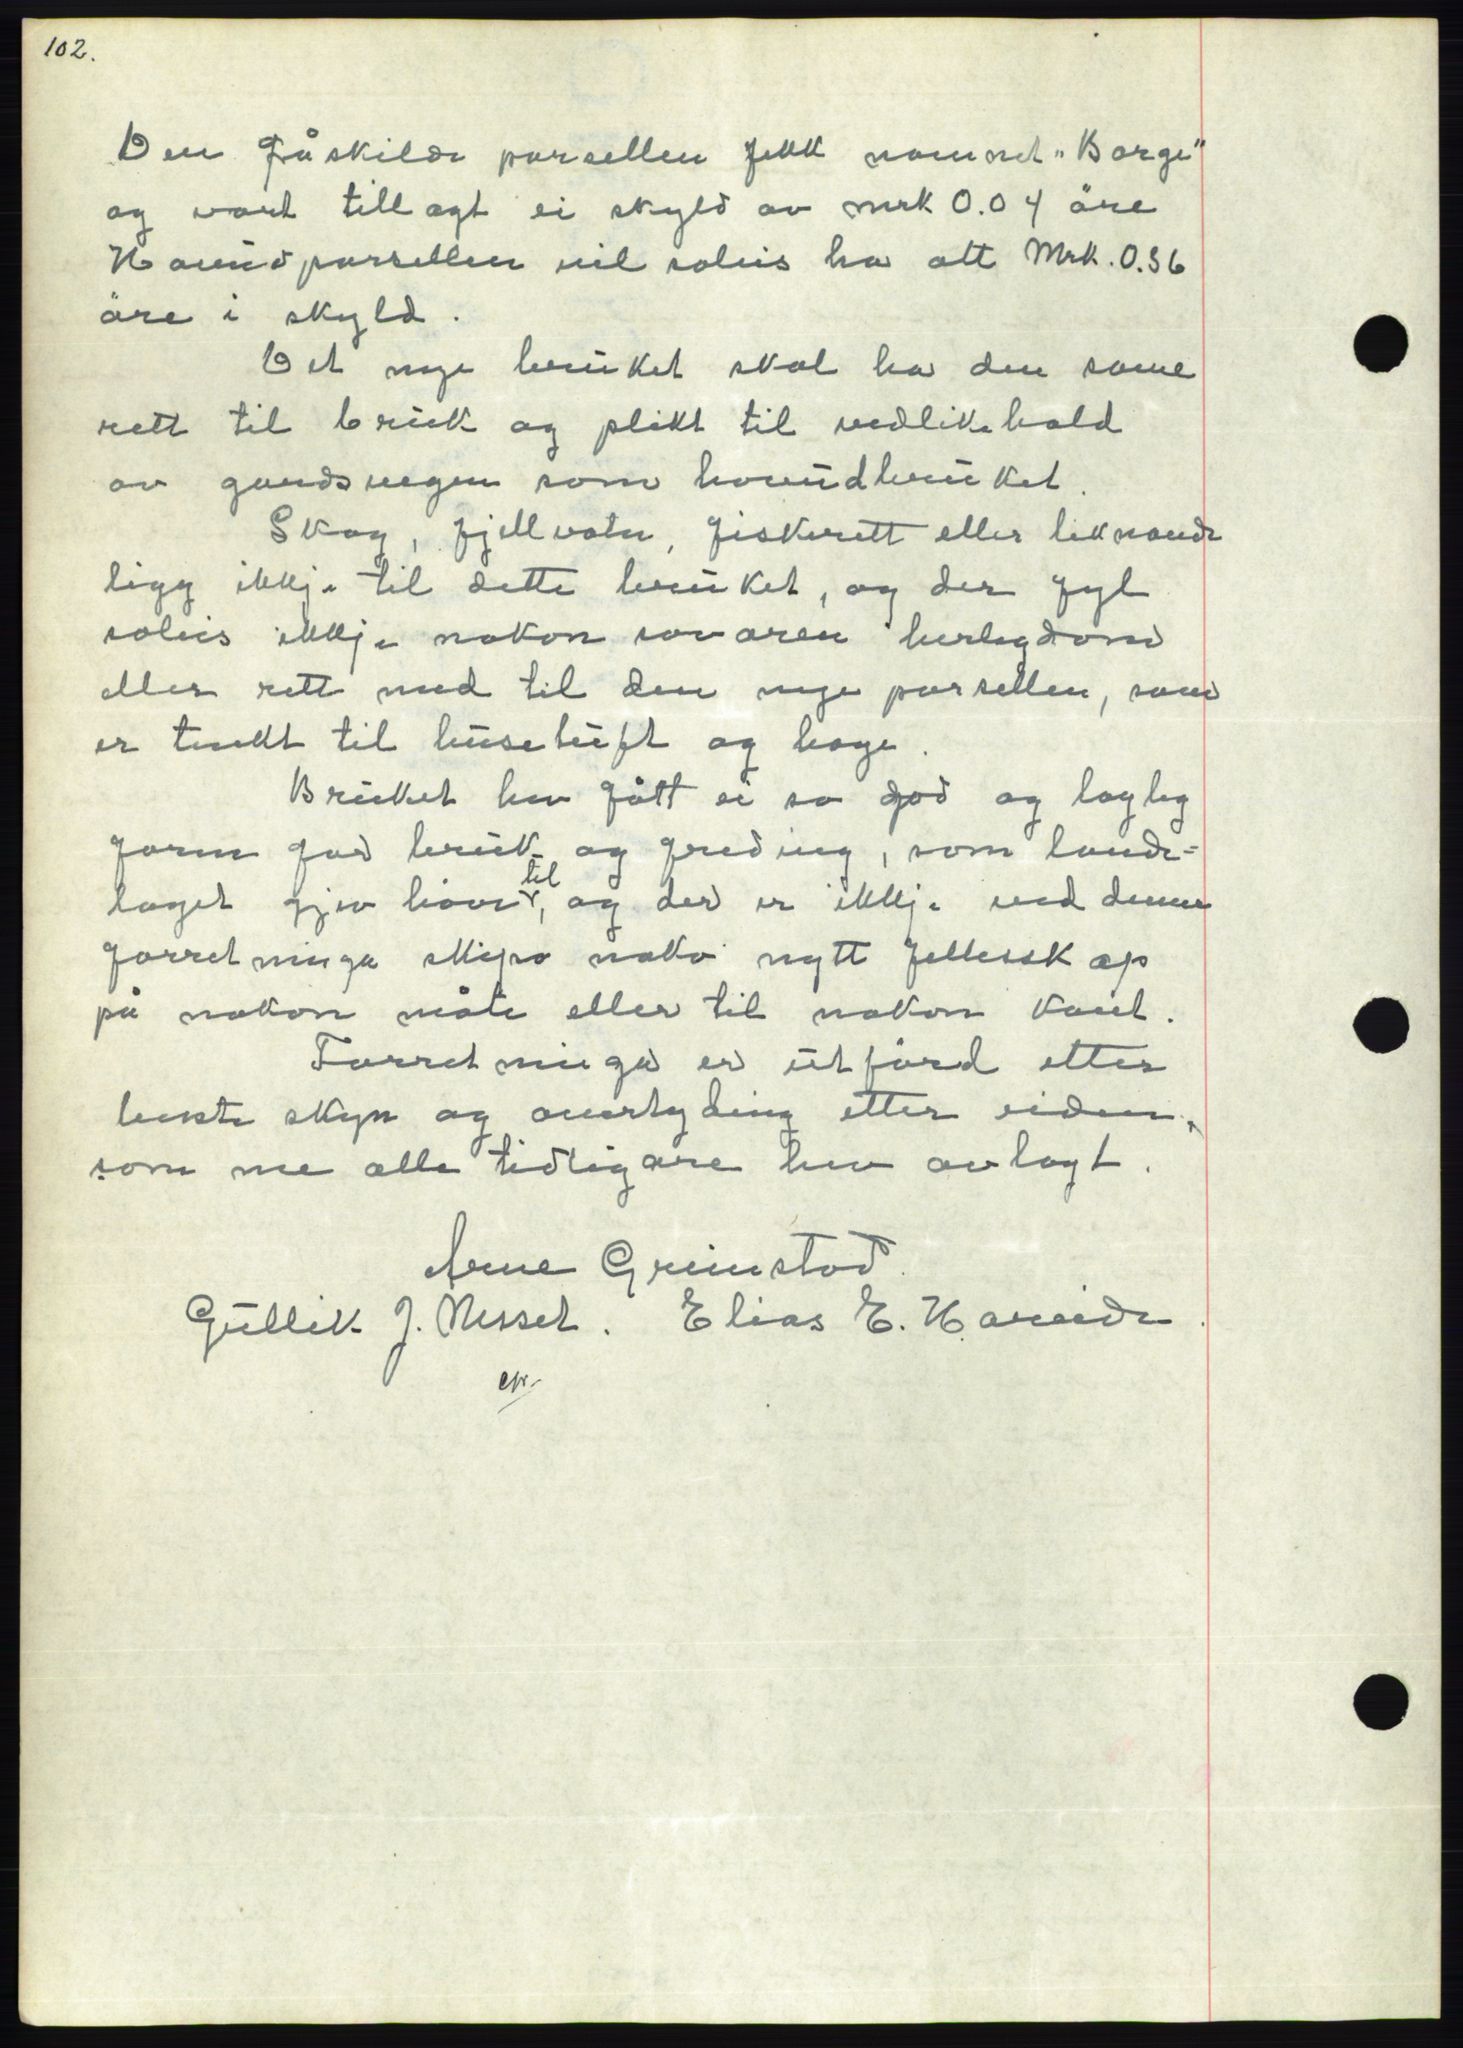 102.
Den fråskilde parsellen fekk namnet "Borge"
og vart tillagt ei skyld av mrk 0.04 øre
Hovudparsellen vil soleis ha att Mrk. 0.36
øre i skyld.
Det nye bruket skal ha den same
rett til bruk og plikt til vedlikehald
av gardsvegen som hovudbruket.
Skog, fjellvatn, fiskerett eller liknande
ligg ikkje til dette bruket, og der fyl
soleis ikkje nokon sovaren herlegdom
eller rett med til den nye parsellen, som
er tenkt til husetuft og hage.
Bruket hev fått ei so god og lagleg
form for bruk og freding, som lande-
laget gjev høve til, og der er ikkje ved denne
forretninga skipa noko nytt fellesskap
på nokon måte eller til nokon kant.
Forretninga er utførd etter
beste skyn og overtyding etter eiden,
som me alle tidligare hev avlagt.
Arne Grimstad.
Gullik J. Nesset. Elias E. Hareide.